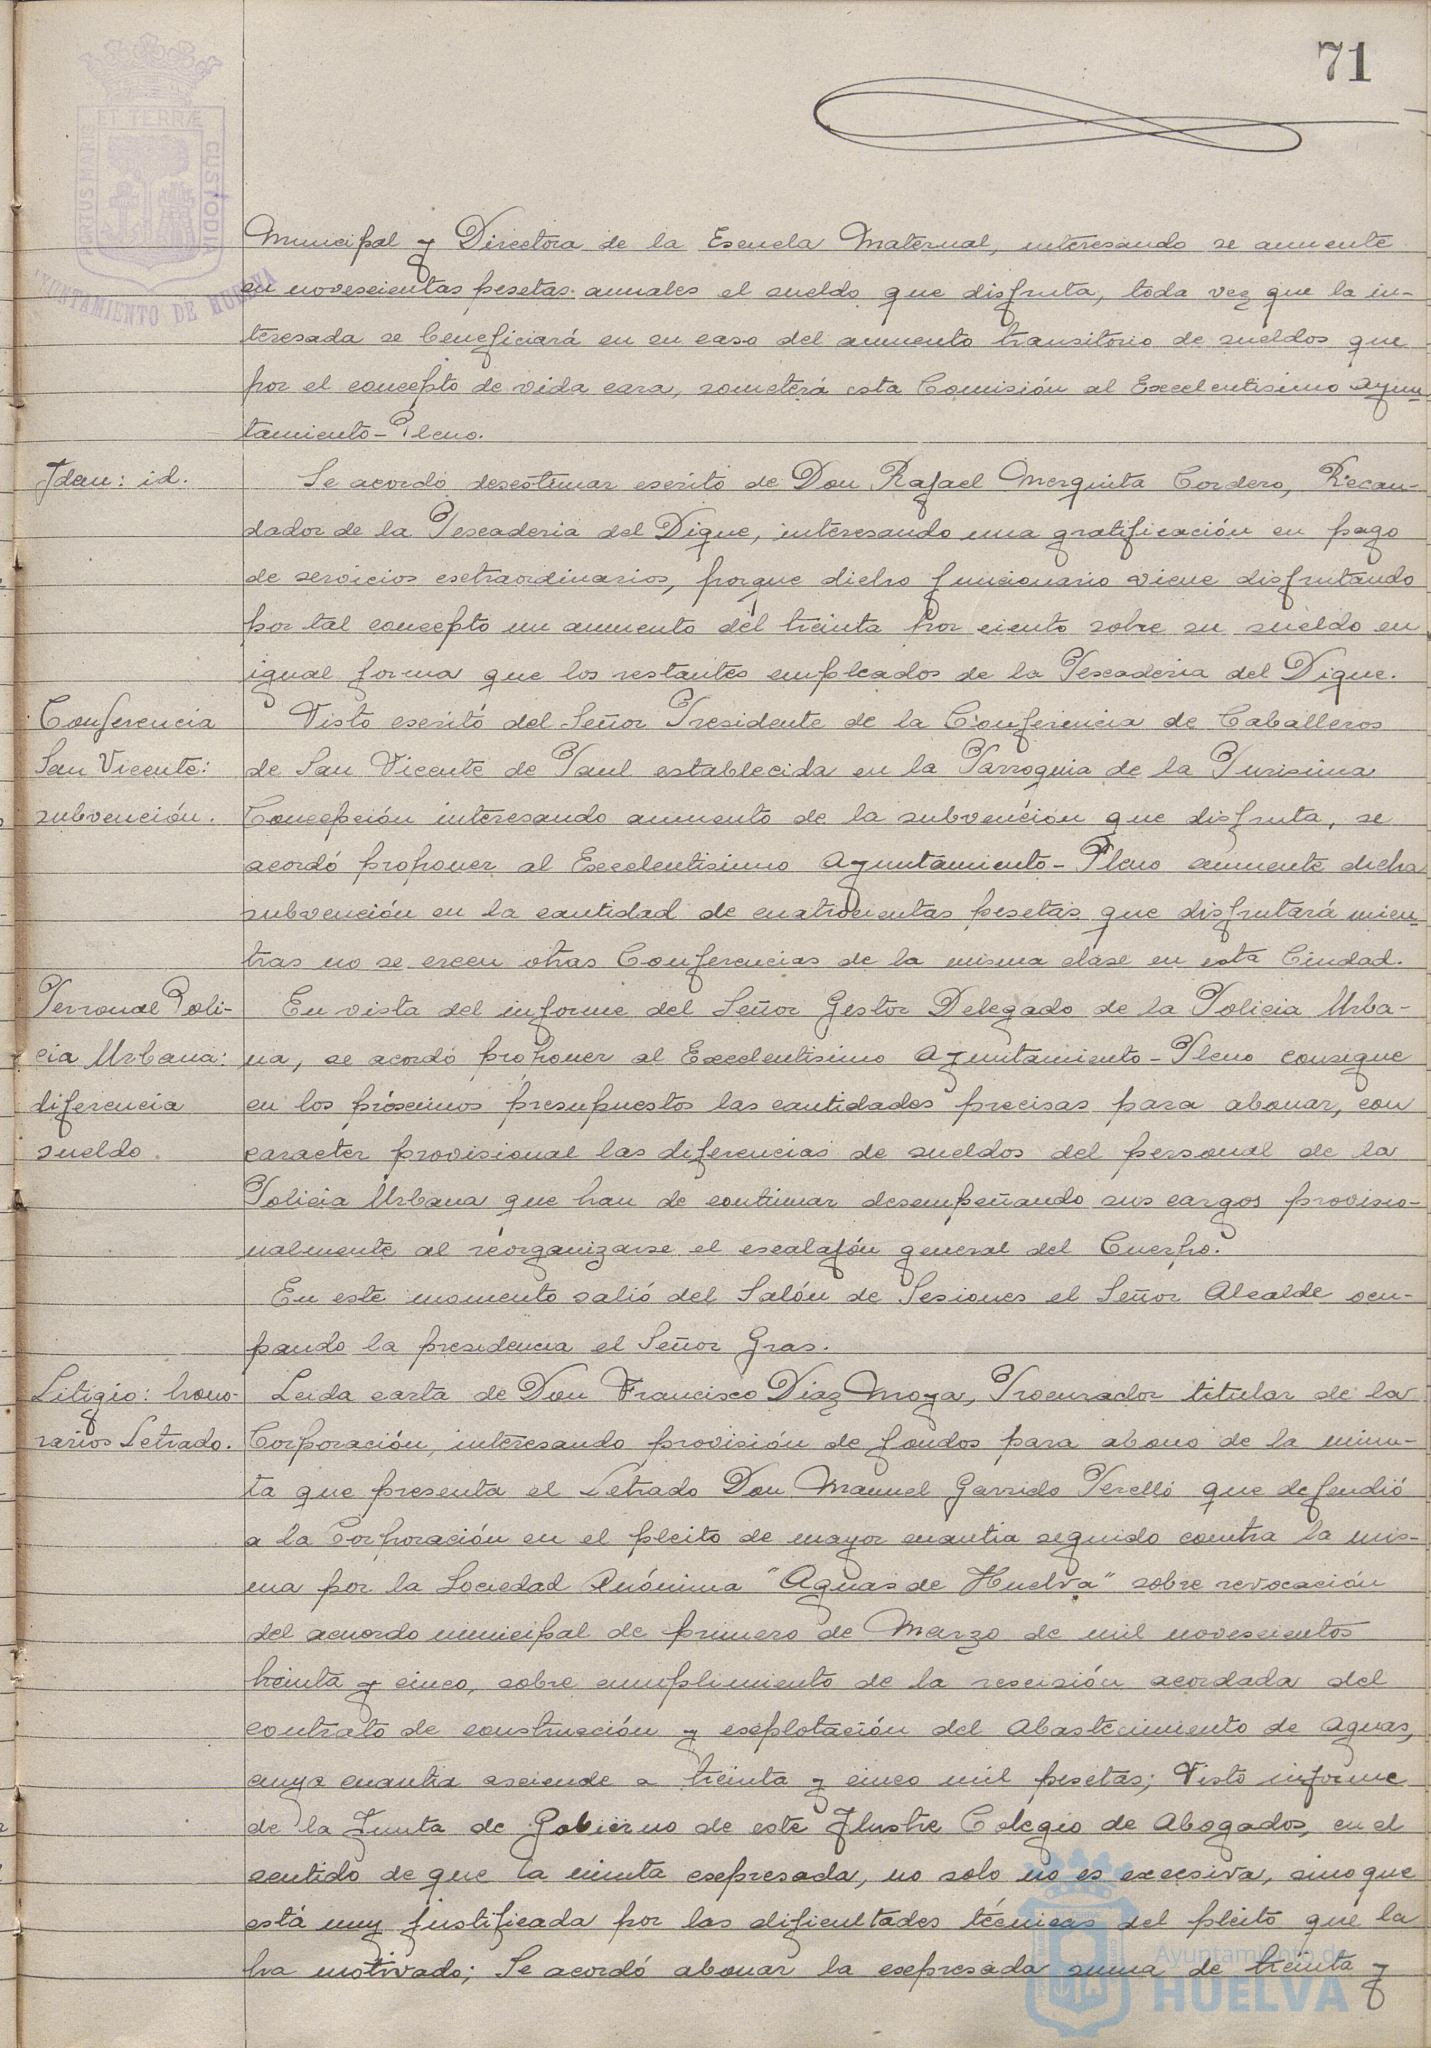 71
PORTUS MARIS ET TERRÆ CUSTODIA
AYUNTAMIENTO DE HUELVA
Municipal y Directora de la Escuela Maternal, interesando se aumente
en novescientas pesetas anuales el sueldo que disfruta, toda vez que la in-
teresada se beneficiará en su caso del aumento transitorio de sueldos que
por el concepto de vida cara, someterá esta Comisión al Excelentisimo Ayun-
tamiento-Pleno.
Idem: id.
Se acordó desestimar escrito de Don Rafael Mezquita Cordero, Recau-
dador de la Pescaderia del Dique, interesando una gratificación en pago
de servicios esctraordinarios, porque dicho funcionario viene disfrutando
por tal concepto un aumento del treinta por ciento sobre su sueldo en
igual forma que los restantes empleados de la Pescaderia del Dique.
Conferencia
San Vicente:
subvención.
Visto escrito del Señor Presidente de la Conferencia de Caballeros
de San Vicente de Paul establecida en la Parroquia de la Purisima
Concepción interesando aumento de la subvención que disfruta, se
acordó proponer al Excelentisimo Ayuntamiento-Pleno aumente dicha
subvención en la cantidad de cuatrocientas pesetas que disfrutará mien-
tras no se creen otras Conferencias de la misma clase en esta Ciudad.
Personal Poli-
cia Urbana:
diferencia
sueldo.
En vista del informe del Señor Gestor Delegado de la Policia Urba-
na, se acordó proponer al Excelentisimo Ayuntamiento-Pleno consigne
en los próscimos presupuestos las cantidades precisas para abonar, con
caracter provisional las diferencias de sueldos del personal de la
Policia Urbana que han de continuar desempeñando sus cargos provisio-
nalmente al reorganizarse el escalafón general del Cuerpo.
En este momento salió del Salón de Sesiones el Señor Alcalde ocu-
pando la presidencia el Señor Gras.
Litigio: hono-
rarios Letrado.
Leida carta de Don Francisco Diaz Moya, Procurador titular de la
Corporación, interesando provisión de fondos para abono de la minu-
ta que presenta el Letrado Don Manuel Garrido Perelló que defendió
a la Corporación en el pleito de mayor cuantia seguido contra la mis-
ma por la Sociedad Anónima "Aguas de Huelva" sobre revocación
del acuerdo municipal de primero de Marzo de mil novescientos
treinta y cinco, sobre cumplimiento de la rescisión acordada del
contrato de construcción y esceplotación del Abastecimiento de Aguas,
cuya cuantia asciende a treinta y cinco mil pesetas; Visto informe
de la Junta de Gobierno de este Ilustre Colegio de Abogados, en el
sentido de que la minuta escepresada, no solo no es excesiva, sino que
está muy justificada por las dificultades técnicas del pleito que la
ha motivado; Se acordó abonar la escepresada suma de treinta y
Ayuntamiento de
HUELVA